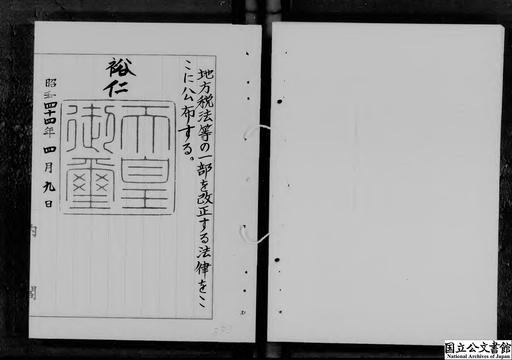 地方税法等の一部を改正する法律をこ
こに公布する。
裕仁
天皇
御璽
昭和四十四年四月九日
内閣
国立公文書館
National Archives of Japan